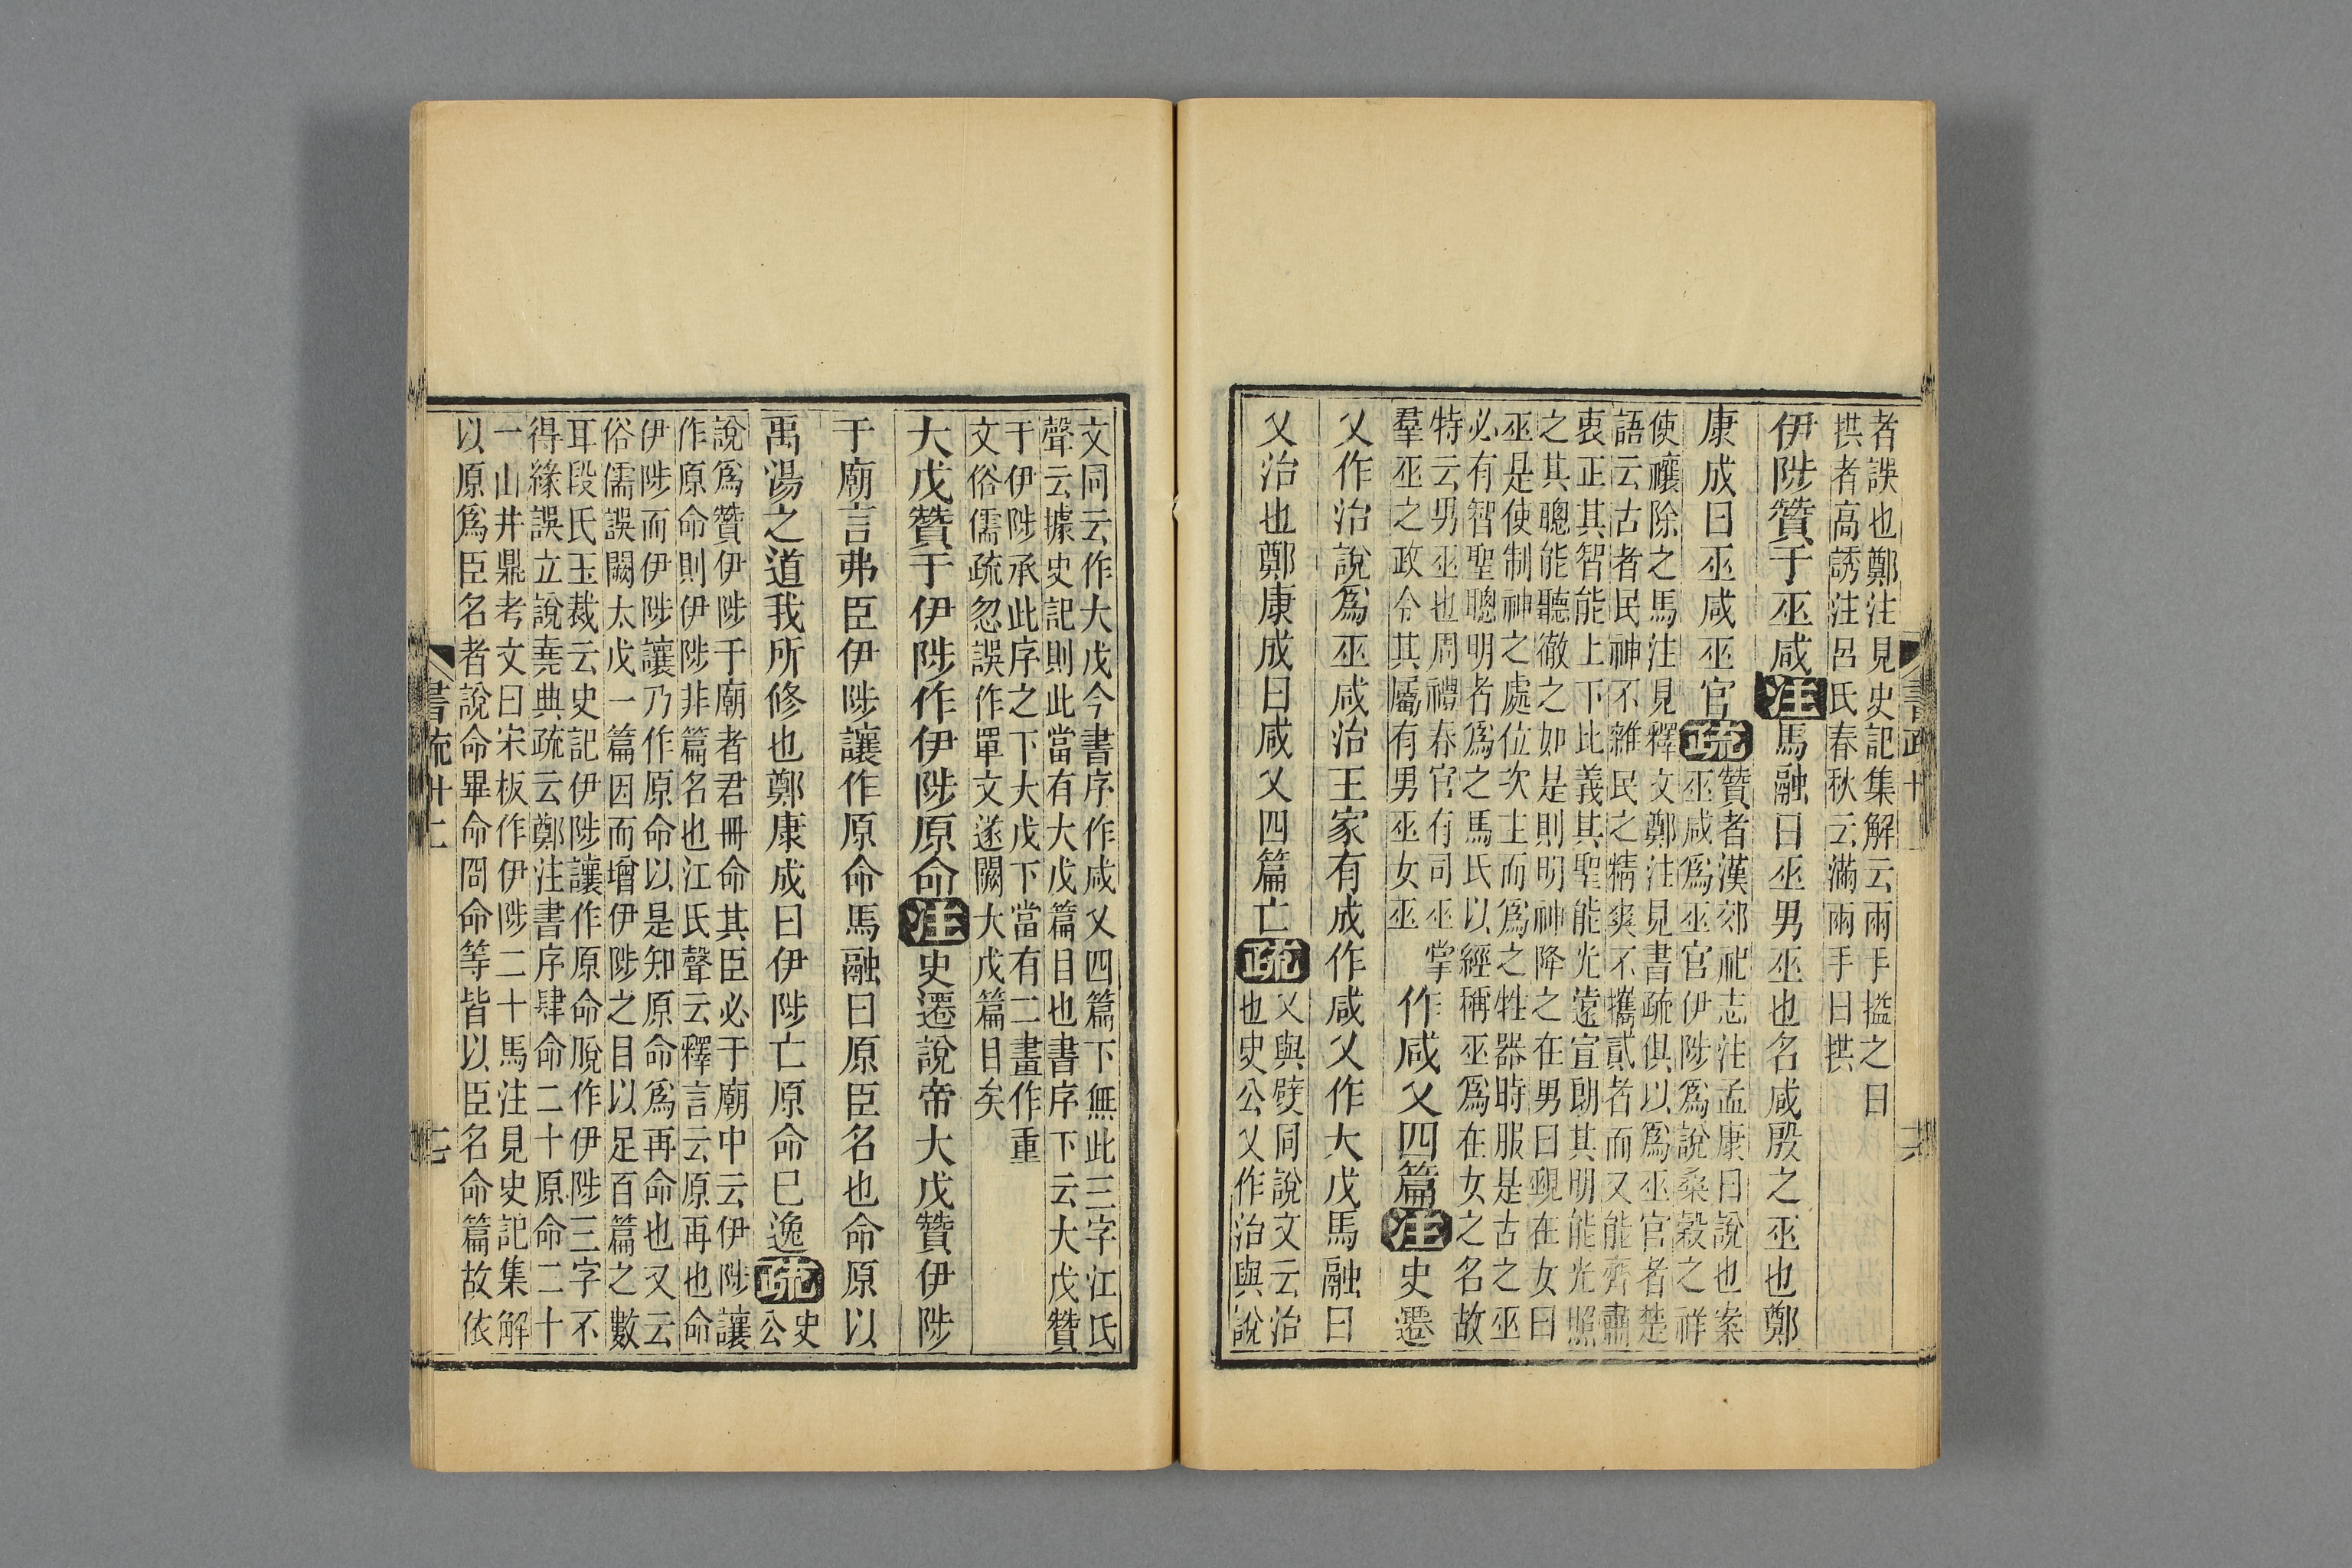 者誤也鄭注見史記集解云兩手搤之曰
拱者高誘注呂氏春秋云滿兩手曰拱
伊陟贊于巫咸注馬融曰巫男巫也名咸殷之巫也鄭
康成曰巫咸巫官疏
贊者漢郊祀志注孟康曰說也案
巫咸爲巫官伊陟爲說桑穀之祥
使禳除之馬注見釋文鄭注見書疏俱以爲巫官者楚
語云古者民神不雜民之精爽不攜貳者而又能齊肅
衷正其智能上下比義其聖能光遠宣朗其明能光照
之其聰能聽徹之如是則明神降之在男曰覡在女曰
巫是使制神之處位次主而爲之牲器時服是古之巫
必有智聖聰明者爲之馬氏以經稱巫爲在女之名故
特云男巫也周禮春官有司巫掌
羣巫之政令其屬有男巫女巫
作咸乂四篇注史遷
乂作治說爲巫咸治王家有成作咸乂作大戊馬融曰
乂治也鄭康成曰咸乂四篇亡疏
乂與嬖同說文云治
也史公乂作治與說
文同云作大戊今書序作咸乂四篇下無此三字江氏
聲云據史記則此當有大戊篇目也書序下云大戊贊
于伊陟承此序之下大戊下當有二畫作重
文俗儒疏忽誤作單文遂闕大戊篇目矣
大戊贊于伊陟作伊陟原命注史遷說帝大戊贊伊陟
于廟言弗臣伊陟讓作原命馬融曰原臣名也命原以
禹湯之道我所修也鄭康成曰伊陟亡原命已逸疏
史
公
說爲贊伊陟于廟者君冊命其臣必于廟中云伊陟讓
作原命則伊陟非篇名也江氏聲云釋言云原再也命
伊陟而伊陟讓乃作原命以是知原命爲再命也又云
俗儒誤闕太戊一篇因而增伊陟之目以足百篇之數
耳段氏玉裁云史記伊陟讓作原命脫作伊陟三字不
得緣誤立說堯典疏云鄭注書序肆命二十原命二十
一山井鼎考文曰宋板作伊陟二十馬注見史記集解
以原爲臣名者說命畢命冏命等皆以臣名命篇故依